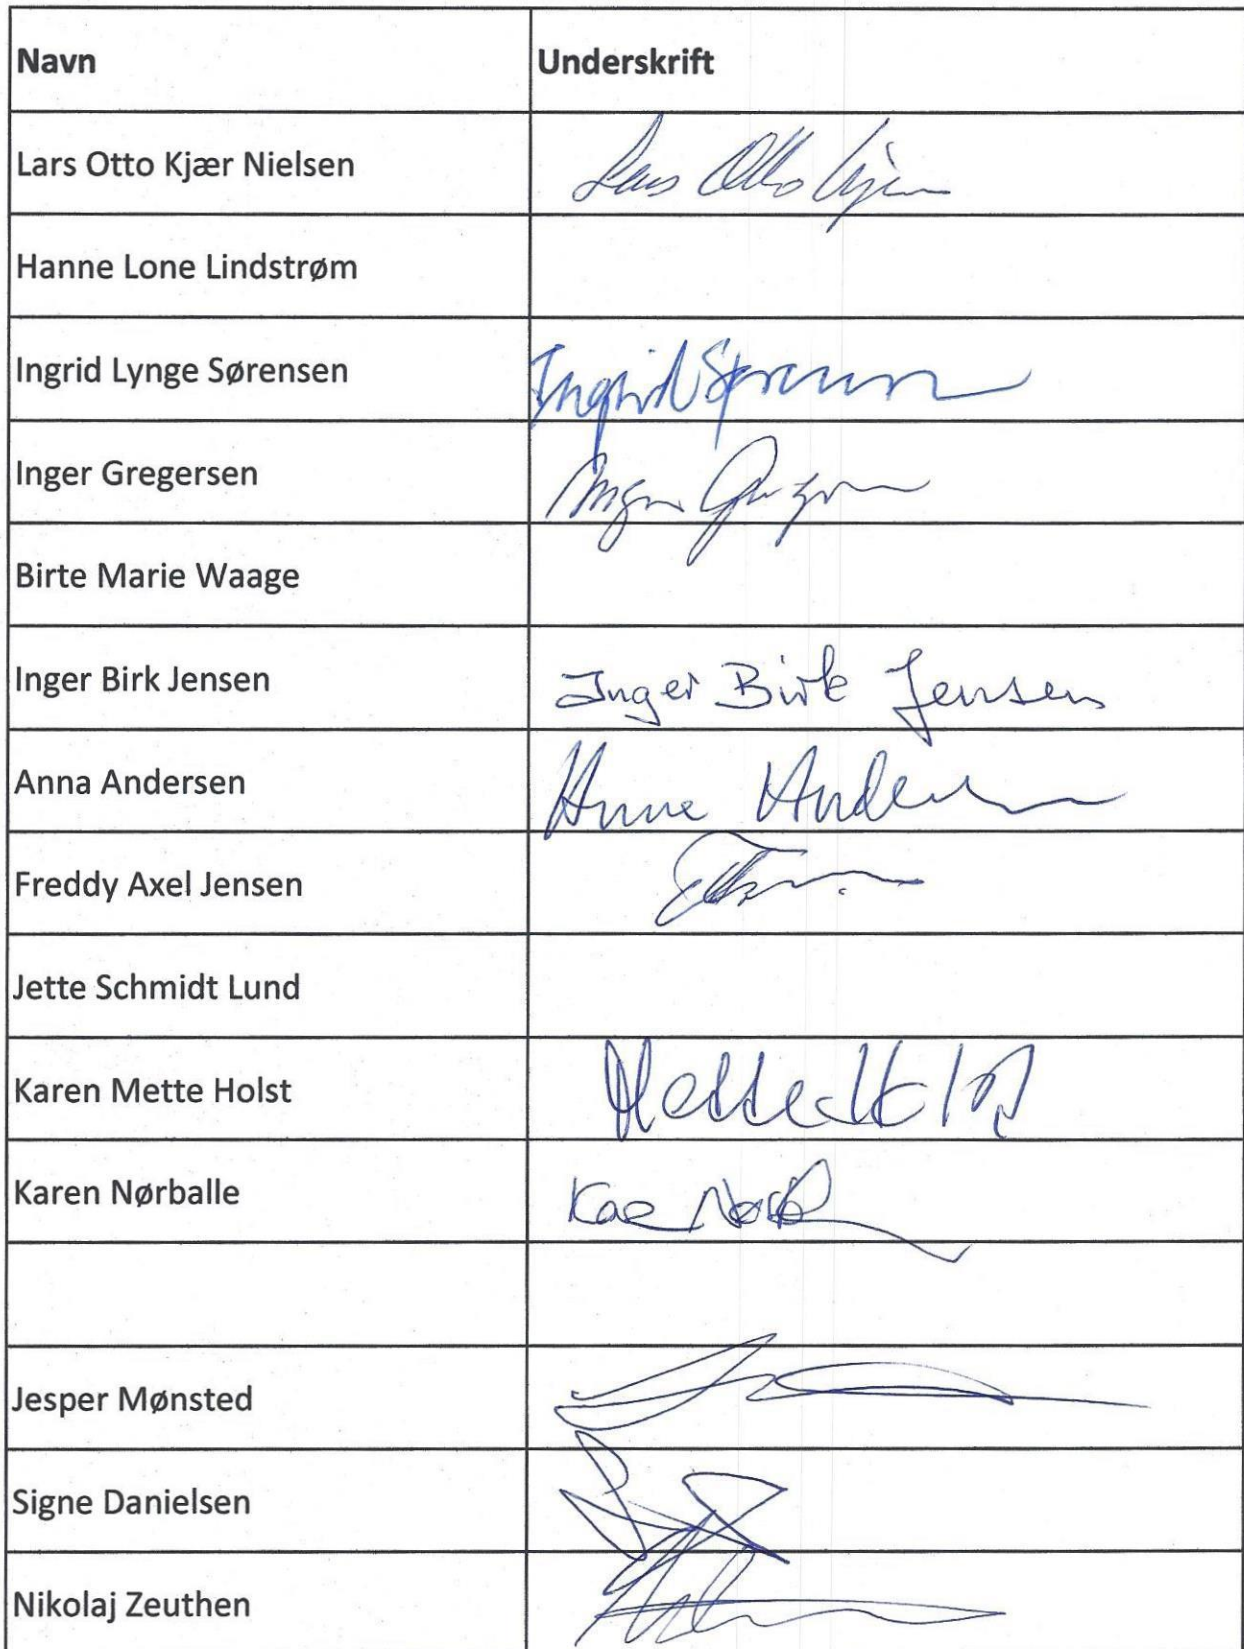 Navn Underskrift
Lars Otto Kjær Nielsen Lars Otto Kjær
Hanne Lone Lindstrøm
Ingrid Lynge Sørensen Ingrid Sørensen
Inger Gregersen Inger Gregersen
Birte Marie Waage
Inger Birk Jensen Inger Birk Jensen
Anna Andersen Anna Andersen
Freddy Axel Jensen
Jette Schmidt Lund
Karen Mette Holst Mette Holst
Karen Nørballe
Jesper Mønsted
Signe Danielsen
Nikolaj Zeuthen